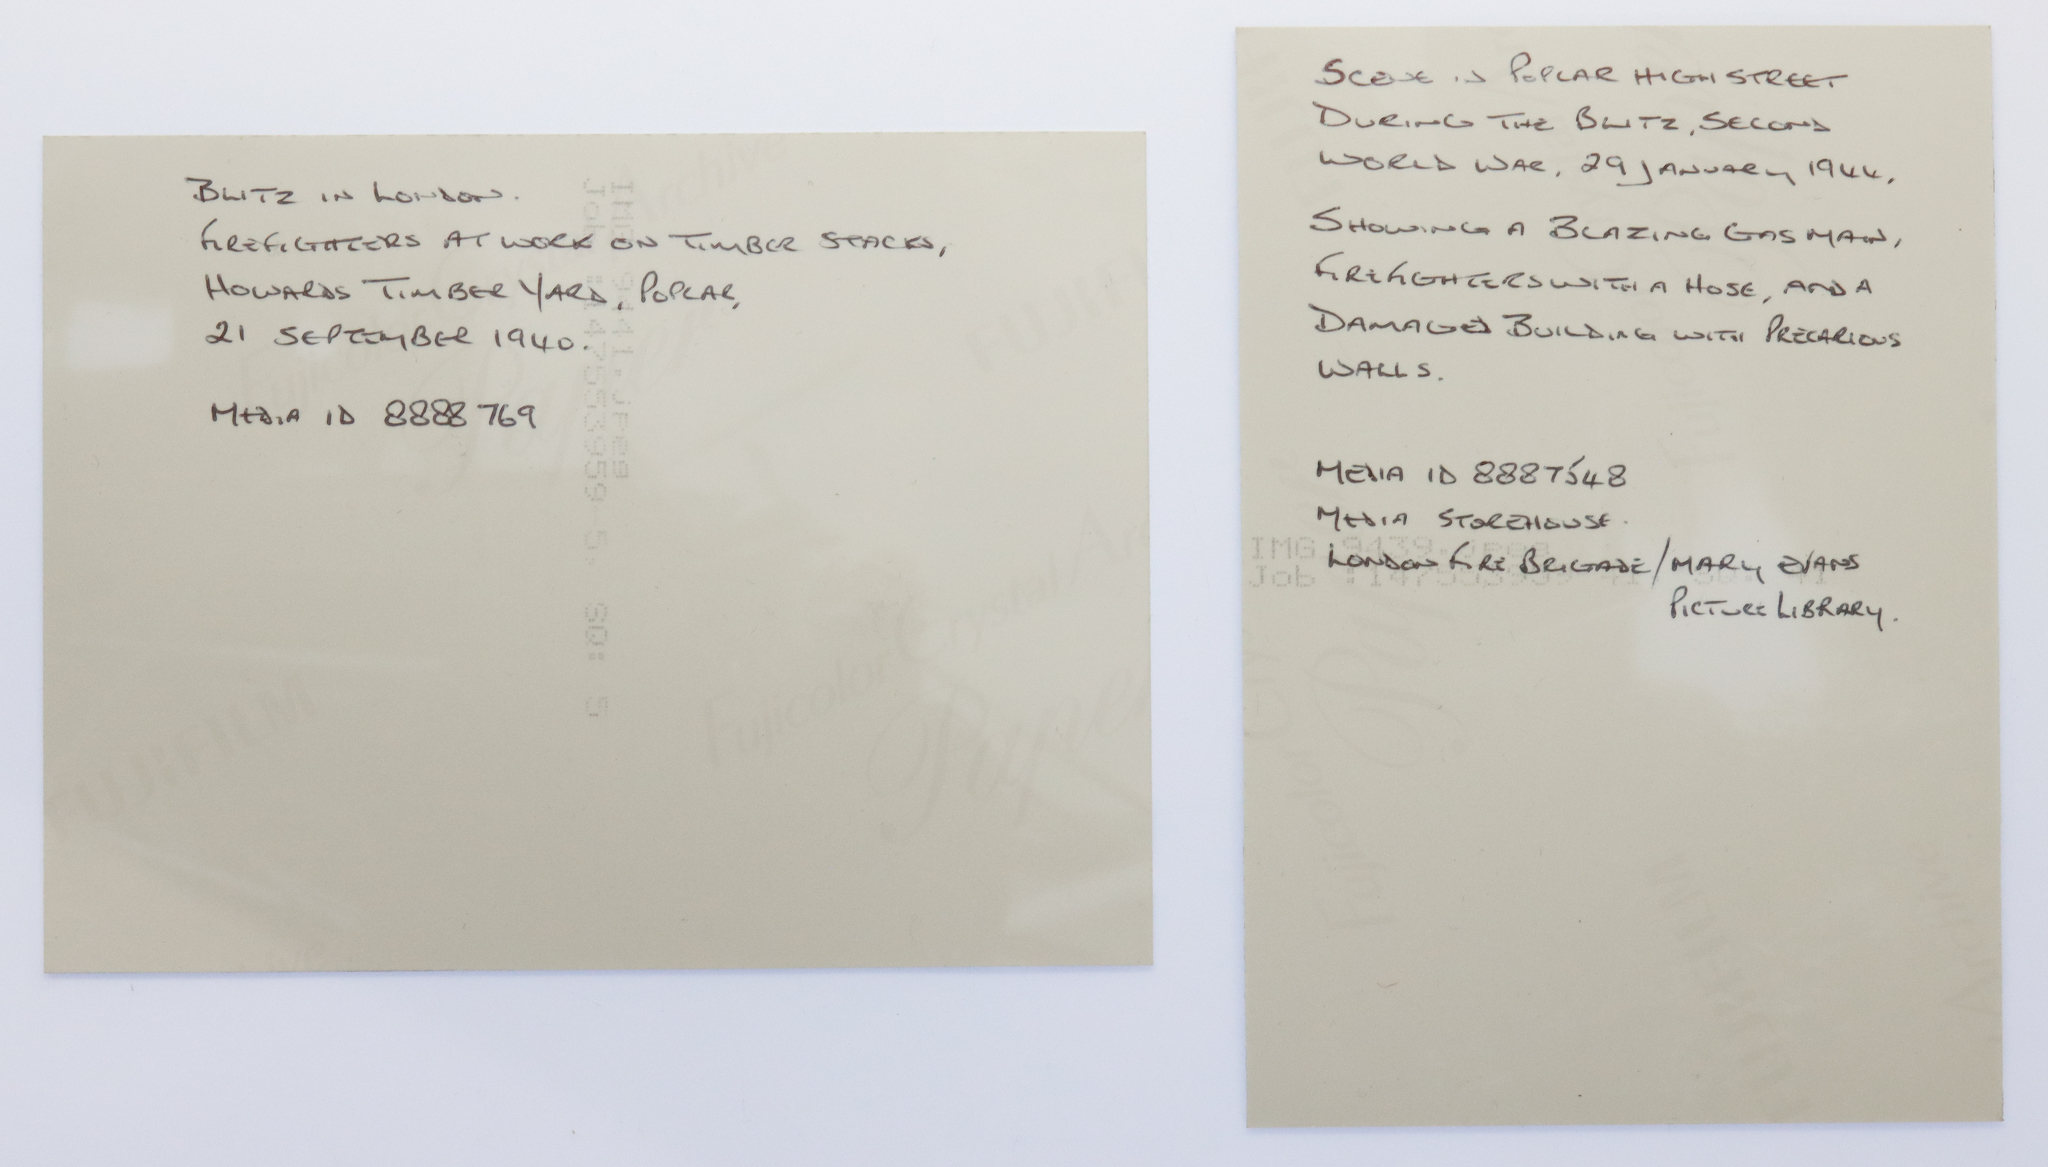 BLITZ IN LONDON.
FIREFIGHTERS AT WORK ON TIMBER STACKS,
HOWARDS TIMBER YARD, POPLAR,
21 SEPTEMBER 1940.
MEDIA ID 8888769
FUJIFILM
Fujicolor Crystal Archive
Paper
SCENE IN POPLAR HIGH STREET
DURING THE BLITZ, SECOND
WORLD WAR, 29 JANUARY 1944,
SHOWING A BLAZING GAS MAIN,
FIREFIGHTERS WITH A HOSE, AND A
DAMAGED BUILDING WITH PRECARIOUS
WALLS.
MEDIA ID 8887548
MEDIA STOREHOUSE.
LONDON FIRE BRIGADE/MARY EVANS
PICTURE LIBRARY.